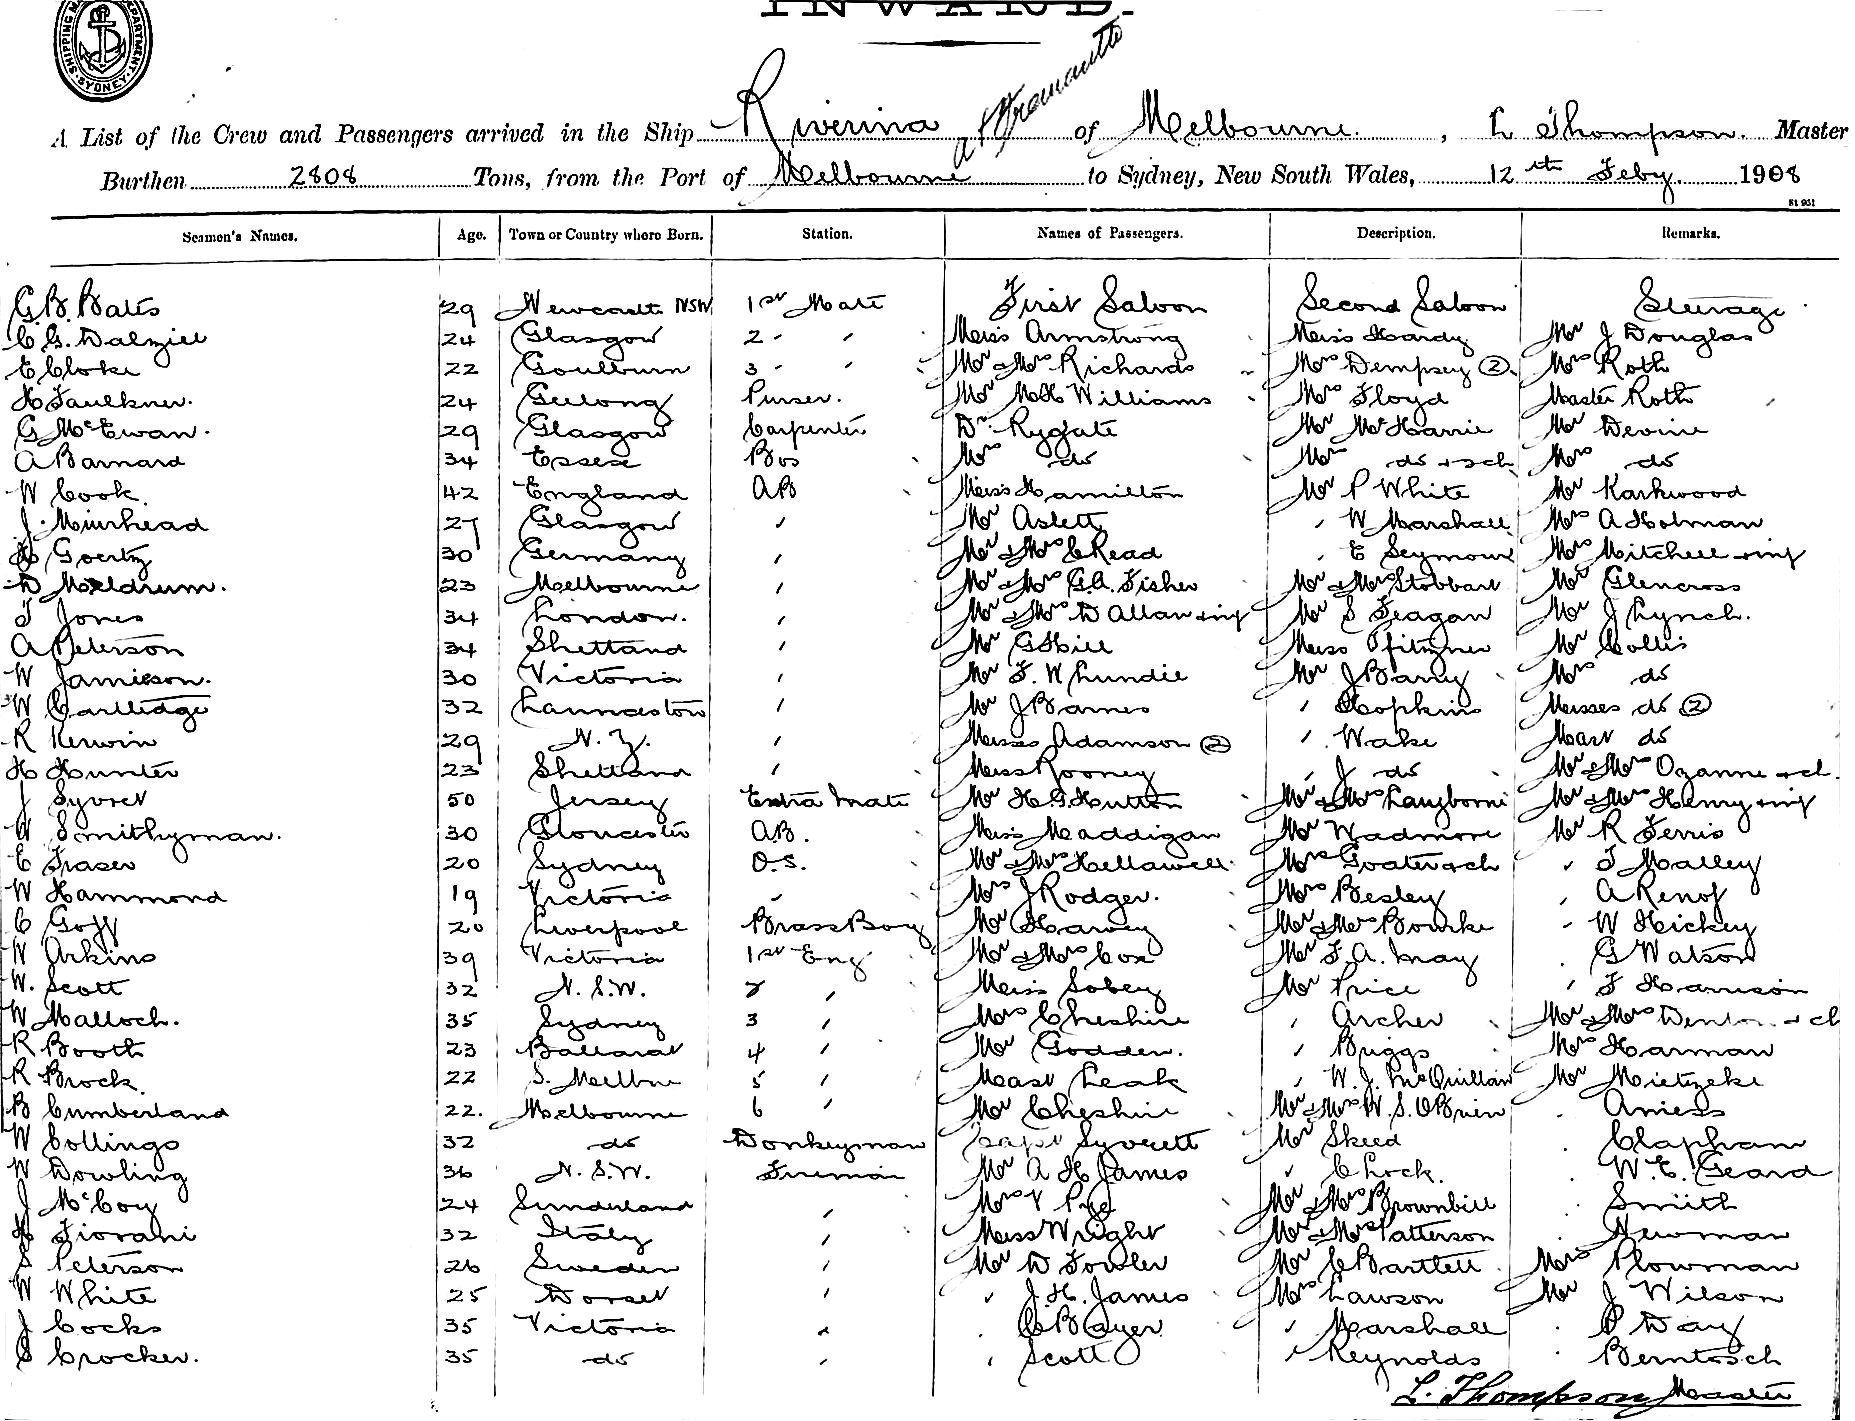 SHIPPING M DEPARTMENT SYDNEY
INWARD.
A List of the Crew and Passengers arrived in the Ship Riverina of Fremantle of Melbourne. , L Thompson. Master
Burthen 2808 Tons, from the Port of Melbourne to Sydney, New South Wales, 12th Feby. 1908
Seamen's Names. Age. Town or Country where Born. Station. Names of Passengers. Description. Remarks.
G.B. Bates 29 Newcastle NSW 1st Mate First Saloon Second Saloon Steerage
C G. Dalziel 24 Glasgow 2 " " Miss Armstrong Miss Hardy Mr J Douglas
E Cloke 22 Goulburn 3 " " Mr & Mrs Richards Mrs Dempsey (2) Mrs Roth
H Faulkner. 24 Geelong Purser. Mr M H Williams Mrs Floyd Master Roth
G McEwan. 29 Glasgow Carpenter Dr. Rygate Mr McHarrie Mr Devine
A Barnard 34 Essex Bos Mrs do Mrs do & ch Mrs do
W Cook. 42 England AB Miss Hamilton Mr P White Mr Karkwood
J. Muirhead 27 Glasgow " Mr Aslett " W Marshall Mrs A Holman
H Goertz 30 Germany " Mr & Mrs C Read " E Seymour Mrs Mitchell & inf
D Meldrum. 23 Melbourne " Mr & Mrs G.A. Fisher Mr & Mrs Stobbart Mr Glencross
T Jones 34 London. " Mr & Mrs D Allan & inf Mr S Feagan Mr J Lynch.
A Peterson 34 Shetland " Mr G Hill Miss Pfitzner Mr Collis
W Jamieson. 30 Victoria " Mr F. W Lundie Mr J Barry Mrs do
W Cartledge 32 Launceston " Mr J Barnes " Hopkins Misses do (2)
R Kerwin 29 N. Z. " Misses Adamson (2) " Wake Mast do
H Hunter 23 Shetland " Miss Rooney " J do Mr & Mrs Ozanne & ch.
J Syvret 50 Jersey Extra Mate Mr H. G. Hutton Mr & Mrs Langborne Mr & Mrs Henry & inf
W Smithyman. 30 Gloucester A.B. Miss Maddigan Mr Wadmore Mr R Ferris
E Fraser 20 Sydney O.S. Mr & Mrs Hellawell Mrs Goater & ch " T Malley
W Hammond 19 Victoria " Mrs J Rodger. Mrs Besley " A Renof
C Goff 20 Liverpool Brass Boy Mr Harvey Mr & Mrs Bourke " W Hickey
W Arkins 39 Victoria 1st Eng Mr & Mrs Cox Mr F. A. May " G Watson
W. Scott 32 N. S.W. 2 " Miss Sobey Mr Price " F Harrison
W Malloch. 35 Sydney 3 " Mrs Cheshire " Archer Mr & Mrs Denton & ch
R Booth 23 Ballarat 4 " Mr Godden. " Briggs Mrs Harman
R Brock. 22 S. Melbne 5 " Mast Leak " W. J. McQuillan Mr Mietzeke
B Cumberland 22. Melbourne 6 " Mr Cheshire Mr & Mrs W. S. OBrien " Amess
W Collings 32 do Donkeyman Capt Syverett Mr Skeed " Clapham
W Dowling 36 N. S.W. Fireman Mr A H James " C Lock. " W. E. Geard
J McCoy 24 Sunderland " Mrs V Pye Mr & Mrs Brownbill " Smith
H Fiorani 32 Italy " Miss Wright Mr & Mrs Patterson " Newman
S Peterson 26 Sweden " Mr D Fowler Mr C Bartlett Mrs Plowman
W White 25 Dorset " " J. H. James Mrs Lawson Mr J Wilson
J Cocks 35 Victoria " " C Bayer " Marshall " P Day
S Crocker. 35 do " " Scott " Reynolds " Berntosch
L. Thompson Master